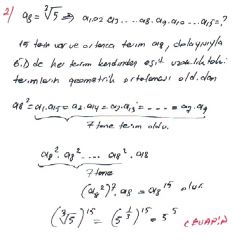 2) a₈ = ∛5 ⇒ a₁.a₂.a₃....a₈.a₉.a₁₀....a₁₅ = ?
15 tane var ve ortanca terim a₈, dolayısıyla
G.D de her terim kendinden eşit uzaklıktaki
terimlerin geometrik ortalaması old.dan
a₈² = a₁.a₁₅ = a₂.a₁₄ = a₃.a₁₃ = ---- = a₇.a₉
7 tane terim oldu.
a₈².a₈². ... a₈².a₈
7 tane
(a₈²)⁷.a₈ = a₈¹⁵ olur.
(∛5)¹⁵ = (5^(1/3))¹⁵ = 5⁵
CEVAPTIR